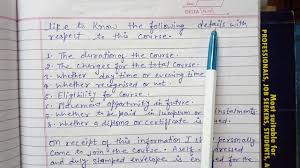 DELTA
like to know the following details with
respect to this course.
1. The duration of the course.
2. The charges for the total course.
3. Whether day time or evening time
4. Whether recognised or not.
5. Eligibility for course
6. Placement opportunity in future
7. Whether to be paid in lumpsum or instalments
8. Whether a diploma or certificate is
On receipt of this information I
come to join the course. A self
and duly stamped envelope is
personally
addressed
Most suitable for
PROFESSIONALS, JOB SEEKERS, STUDENTS,